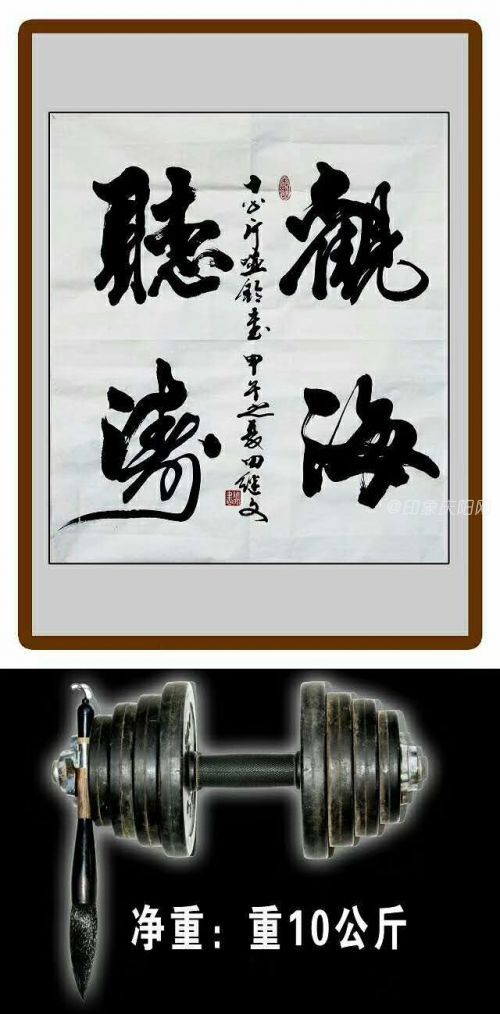 觀海
聽濤
十公斤啞鈴書 甲午之夏 田継文
@印象庆阳网
净重：重10公斤